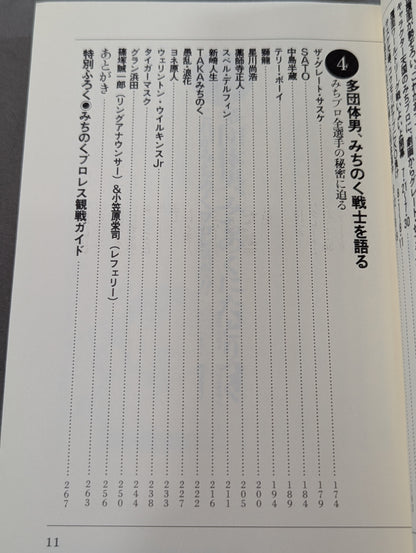 4 多団体男、みちのく戦士を語る
みちプロ全選手の秘密に迫る
ザ・グレート・サスケ 174
SATO 179
中島半蔵 184
テリー・ボーイ 189
獅龍 194
星川尚浩 200
薬師寺正人 205
スペル・デルフィン 211
新崎人生 216
TAKAみちのく 222
愚乱・浪花 227
ヨネ原人 233
ウェリントン・ウイルキンスJr 238
タイガーマスク 244
グラン浜田 250
篠塚誠一郎（リングアナウンサー）&小笠原栄司（レフェリー） 256
あとがき 263
特別ふろく●みちのくプロレス観戦ガイド 267
11